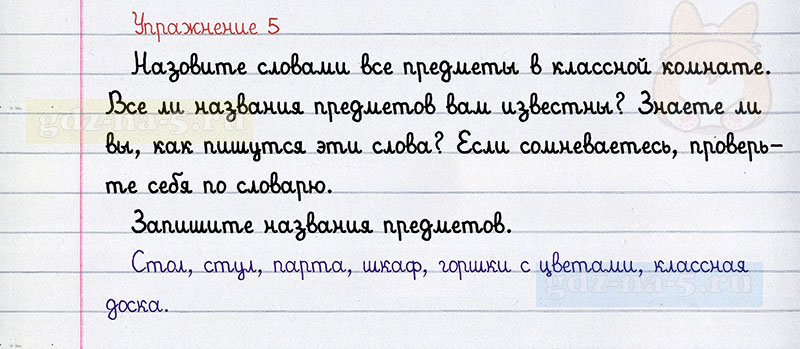 Упражнение 5
Назовите словами все предметы в классной комнате.
Все ли названия предметов вам известны? Знаете ли
вы, как пишутся эти слова? Если сомневаетесь, проверь-
те себя по словарю.
Запишите названия предметов.
Стол, стул, парта, шкаф, горшки с цветами, классная
доска.
gdz-na-5.ru
gdz-na-5.ru